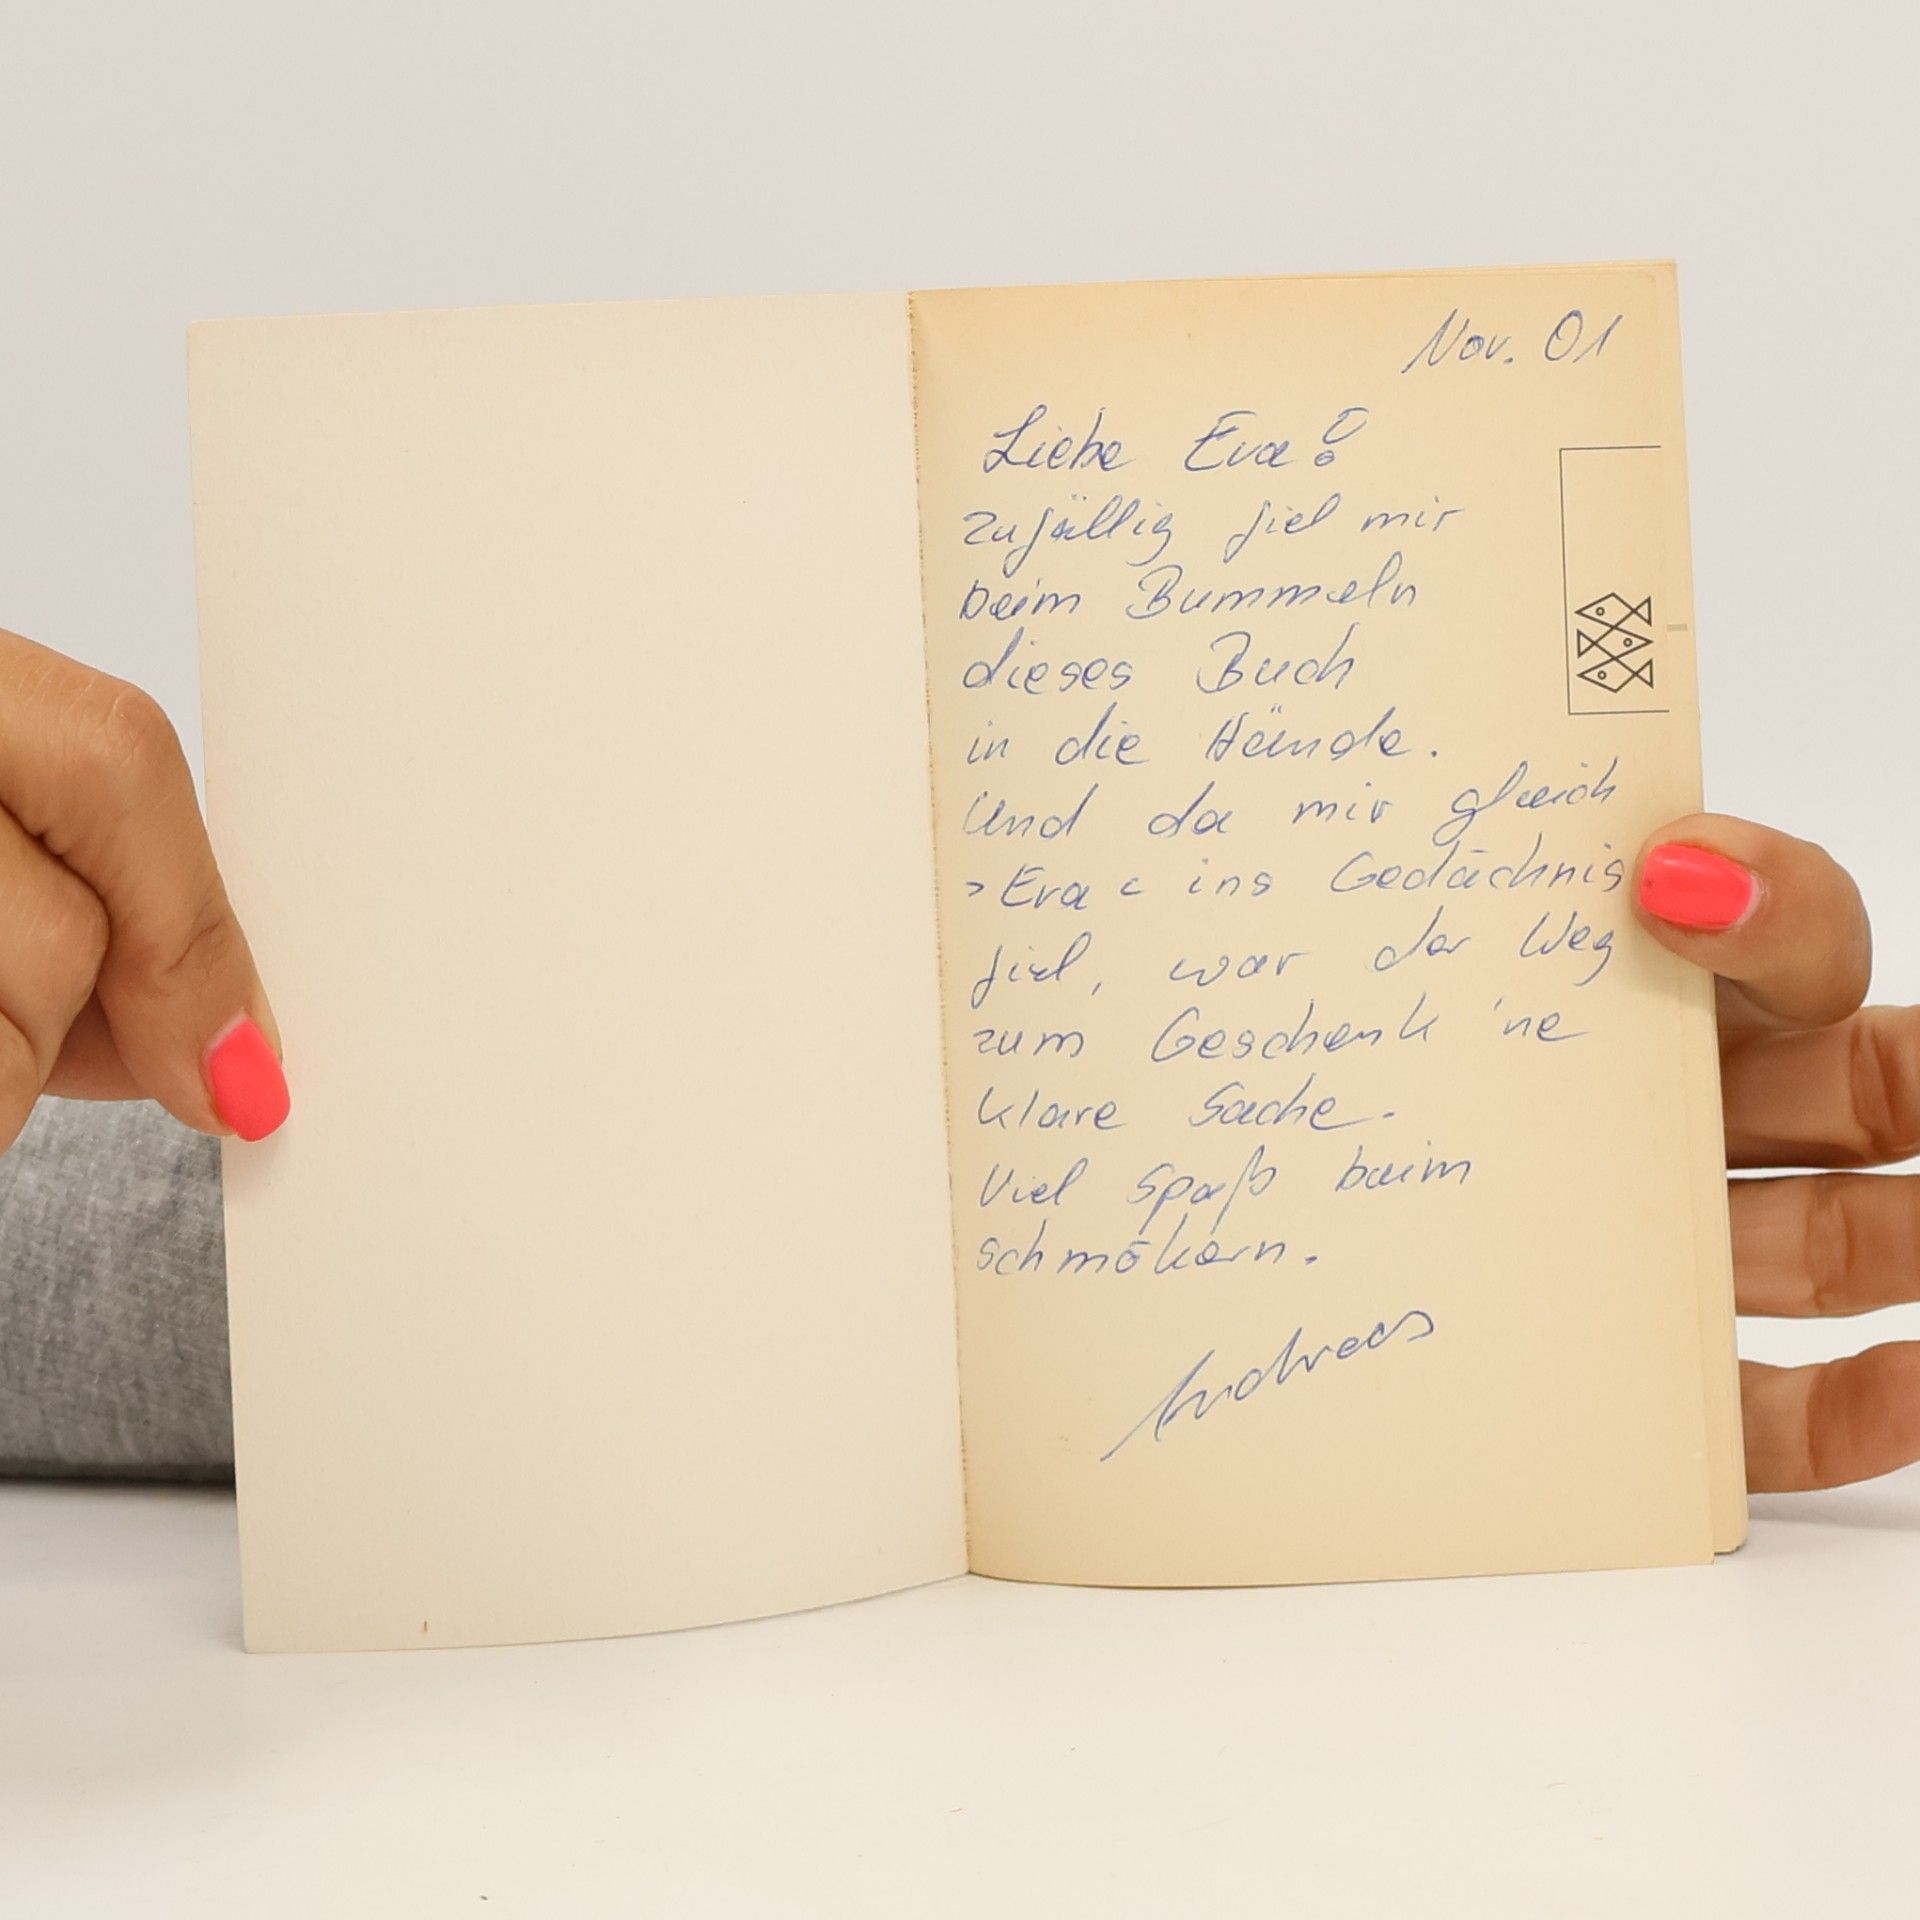 Nov. 01
Liebe Eva!
zufällig fiel mir
beim Bummeln
dieses Buch
in die Hände.
Und da mir gleich
>Eva< ins Gedächnis
fiel, war der Weg
zum Geschenk 'ne
klare Sache.
Viel Spaß beim
schmökern.
Andreas